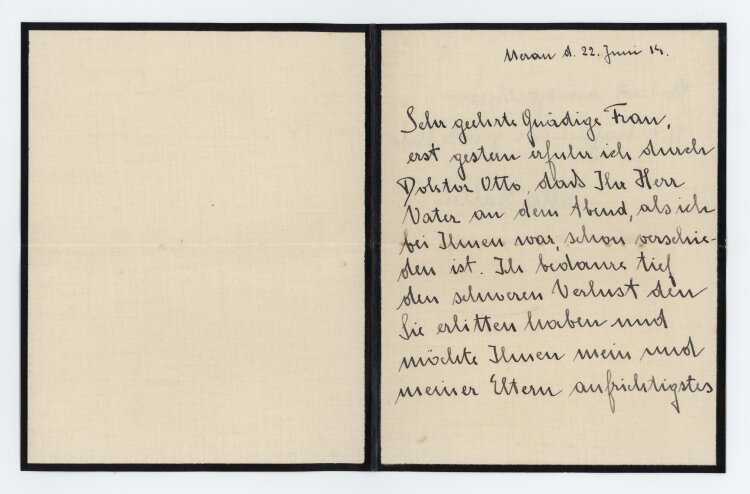 Meran d. 22. Juni 14.
Sehr geehrte Gnädige Frau,
erst gestern erfuhr ich durch
Doktor Otto, dass Ihr Herr
Vater an dem Abend, als ich
bei Ihnen war, schon verschie-
den ist. Ich bedaure tief
den schweren Verlust den
Sie erlitten haben und
möchte Ihnen mein und
meiner Eltern aufrichtigstes